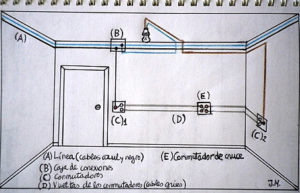 (A)
(B)
(E)
(C)1
(D)
(C)2
(A) Línea (cables azul y negro)
(E) Conmutador de cruce
(B) Caja de conexiones
(C) Conmutadores
(D) Vueltas de los conmutadores (cables grises)
J.M.